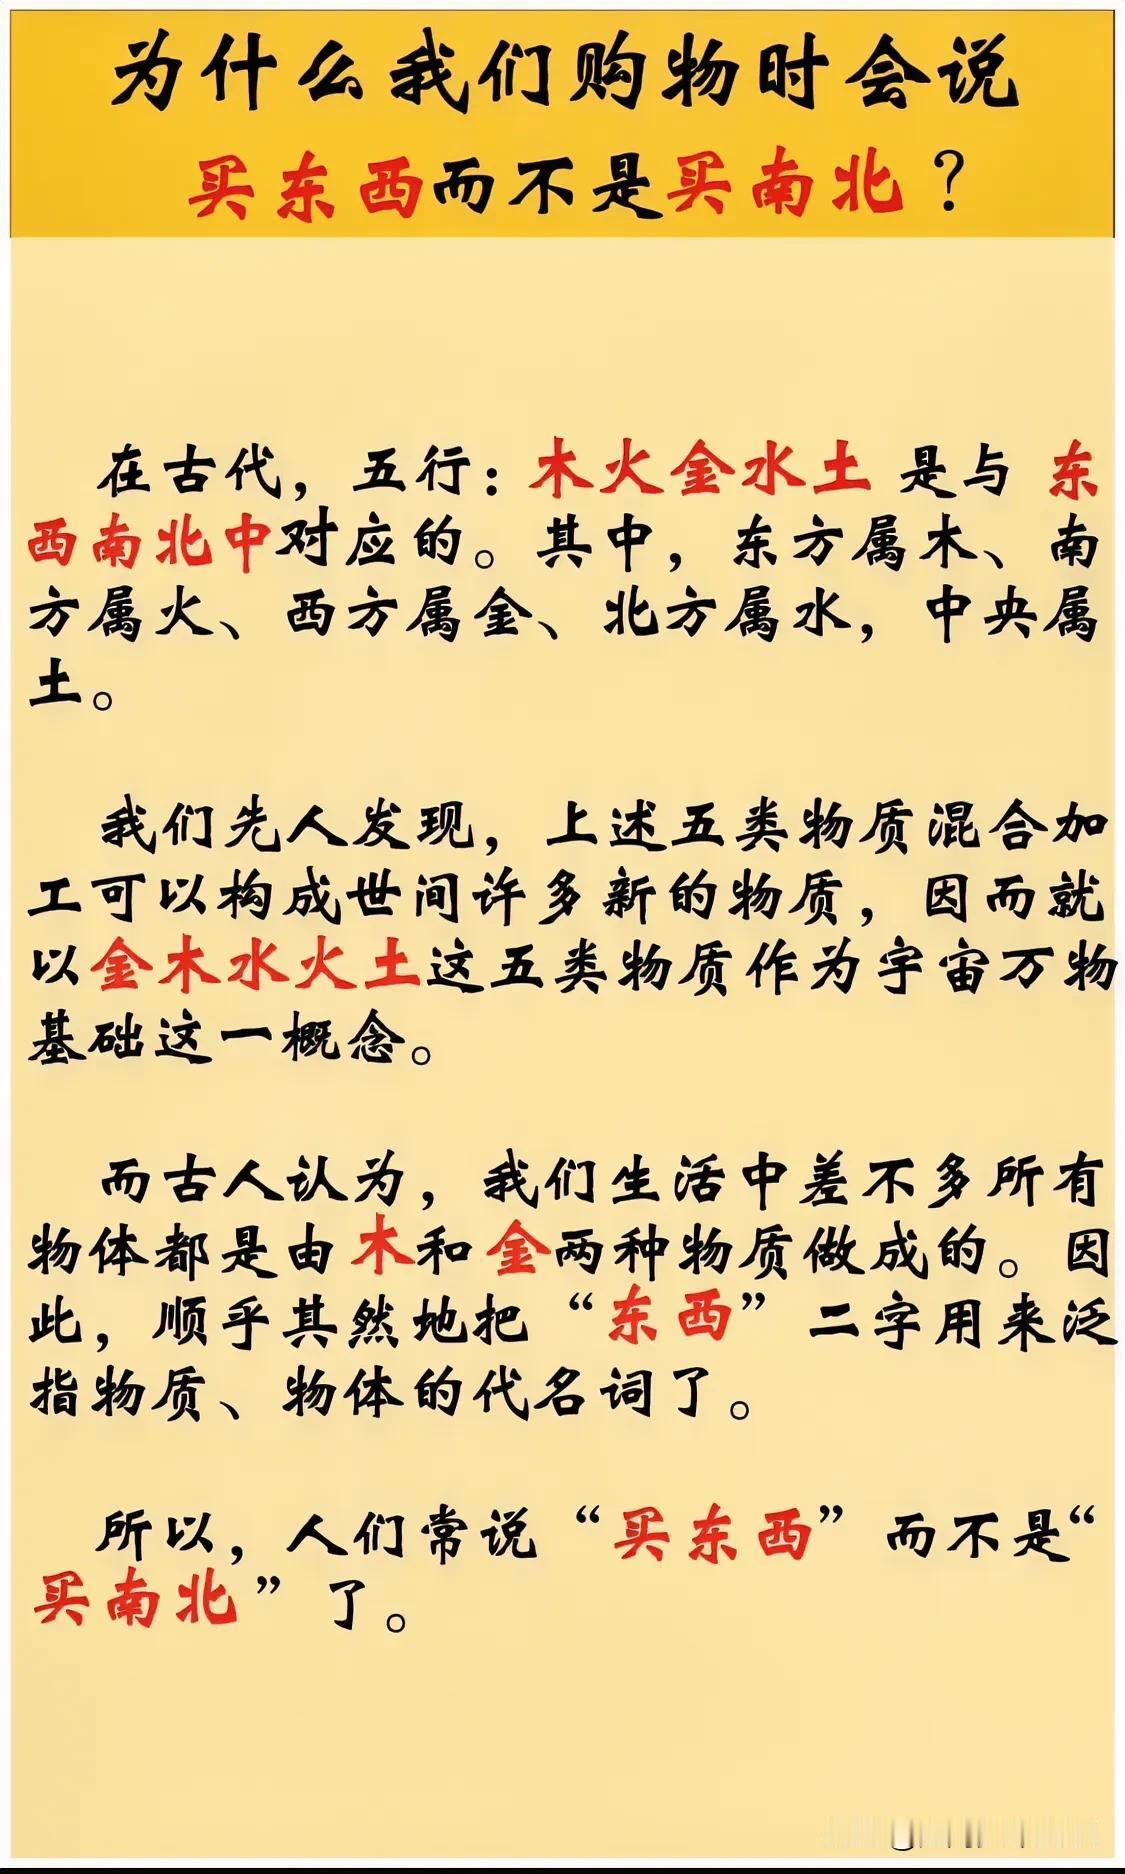 为什么我们购物时会说
买东西而不是买南北？
在古代，五行：木火金水土 是与 东
西南北中对应的。其中，东方属木、南
方属火、西方属金、北方属水，中央属
土。
我们先人发现，上述五类物质混合加
工可以构成世间许多新的物质，因而就
以金木水火土这五类物质作为宇宙万物
基础这一概念。
而古人认为，我们生活中差不多所有
物体都是由木和金两种物质做成的。因
此，顺乎其然地把“东西”二字用来泛
指物质、物体的代名词了。
所以，人们常说“买东西”而不是“
买南北”了。